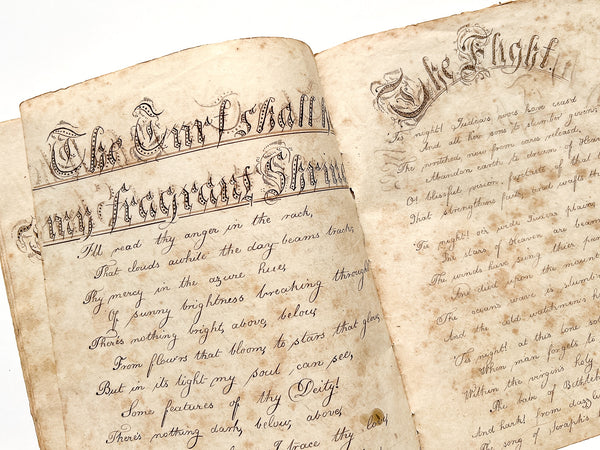 The Turf shall b
my fragrant Shrine
I'll read thy anger in the rack,
That clouds awhile the day beams track;
Thy mercy in the azure hue,
Of sunny brightness breaking through
There's nothing bright, above, below,
From flowrs that bloom, to stars that glow,
But in its light my soul can see,
Some features of thy Deity!
There's nothing dark, below, above,
I trace thy love,
The Flight
'Tis night! Judeas woes have ceasd
And all her sons to slumber
The night from cares released,
Abandon earth to dream of Heav
Or blissful vision, of that
That strengthens faith and wafts
'Tis night! o'er wide Judeas plains
stars of Heaven are
The winds have sung their
And died upon the
The oceans wave is
And the old watchman's
'Tis night! at this lone
When man forgets
Within the virgins holy
The babe of Bethleh
And hark! from
The song of Seraphs